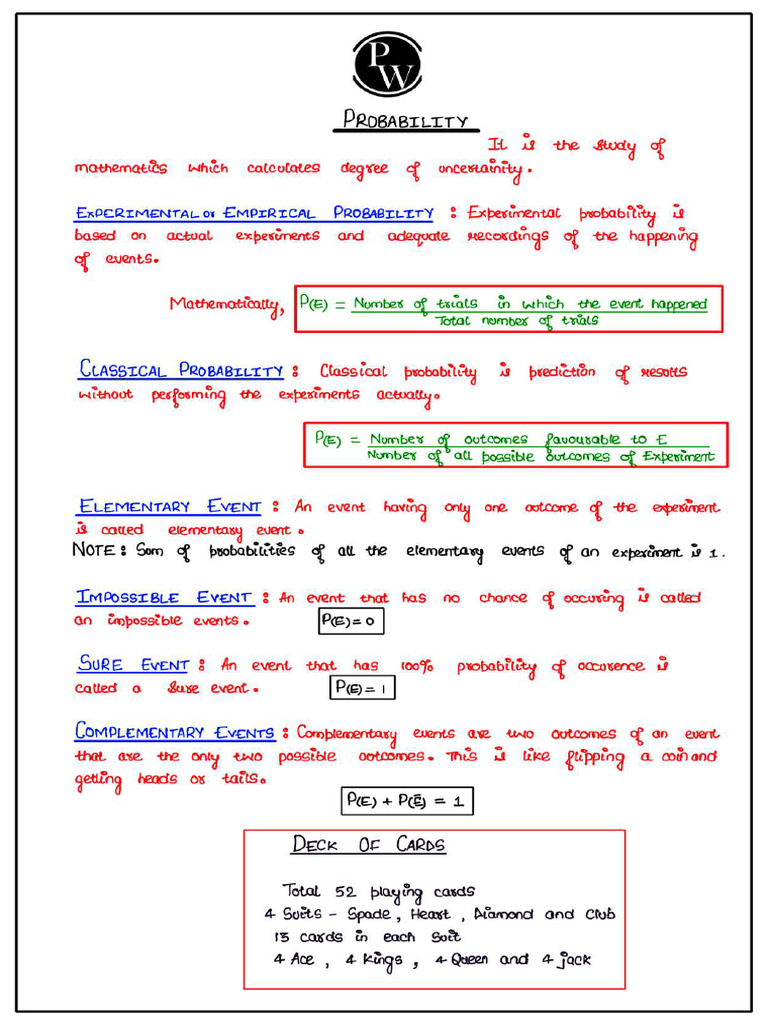 PW
PROBABILITY
It is the study of
mathematics which calculates degree of uncertainity.
EXPERIMENTAL or EMPIRICAL PROBABILITY : Experimental probability is
based on actual experiments and adequate recordings of the happening
of events.
Mathematically, P(E) = Number of trials in which the event happened
Total number of trials
CLASSICAL PROBABILITY : Classical probability is prediction of results
without performing the experiments actually.
P(E) = Number of outcomes favourable to E
Number of all possible outcomes of Experiment
ELEMENTARY EVENT : An event having only one outcome of the experiment
is called elementary event.
NOTE : Sum of probabilities of all the elementary events of an experiment is 1.
IMPOSSIBLE EVENT : An event that has no chance of occuring is called
an impossible events. P(E) = 0
SURE EVENT : An event that has 100% probability of occurence is
called a sure event. P(E) = 1
COMPLEMENTARY EVENTS : Complementary events are two outcomes of an event
that are the only two possible outcomes. This is like flipping a coin and
getting heads or tails.
P(E) + P(Ē) = 1
DECK OF CARDS
Total 52 playing cards
4 Suits - Spade, Heart, Diamond and Club
13 cards in each suit
4 Ace, 4 Kings, 4 Queen and 4 jack